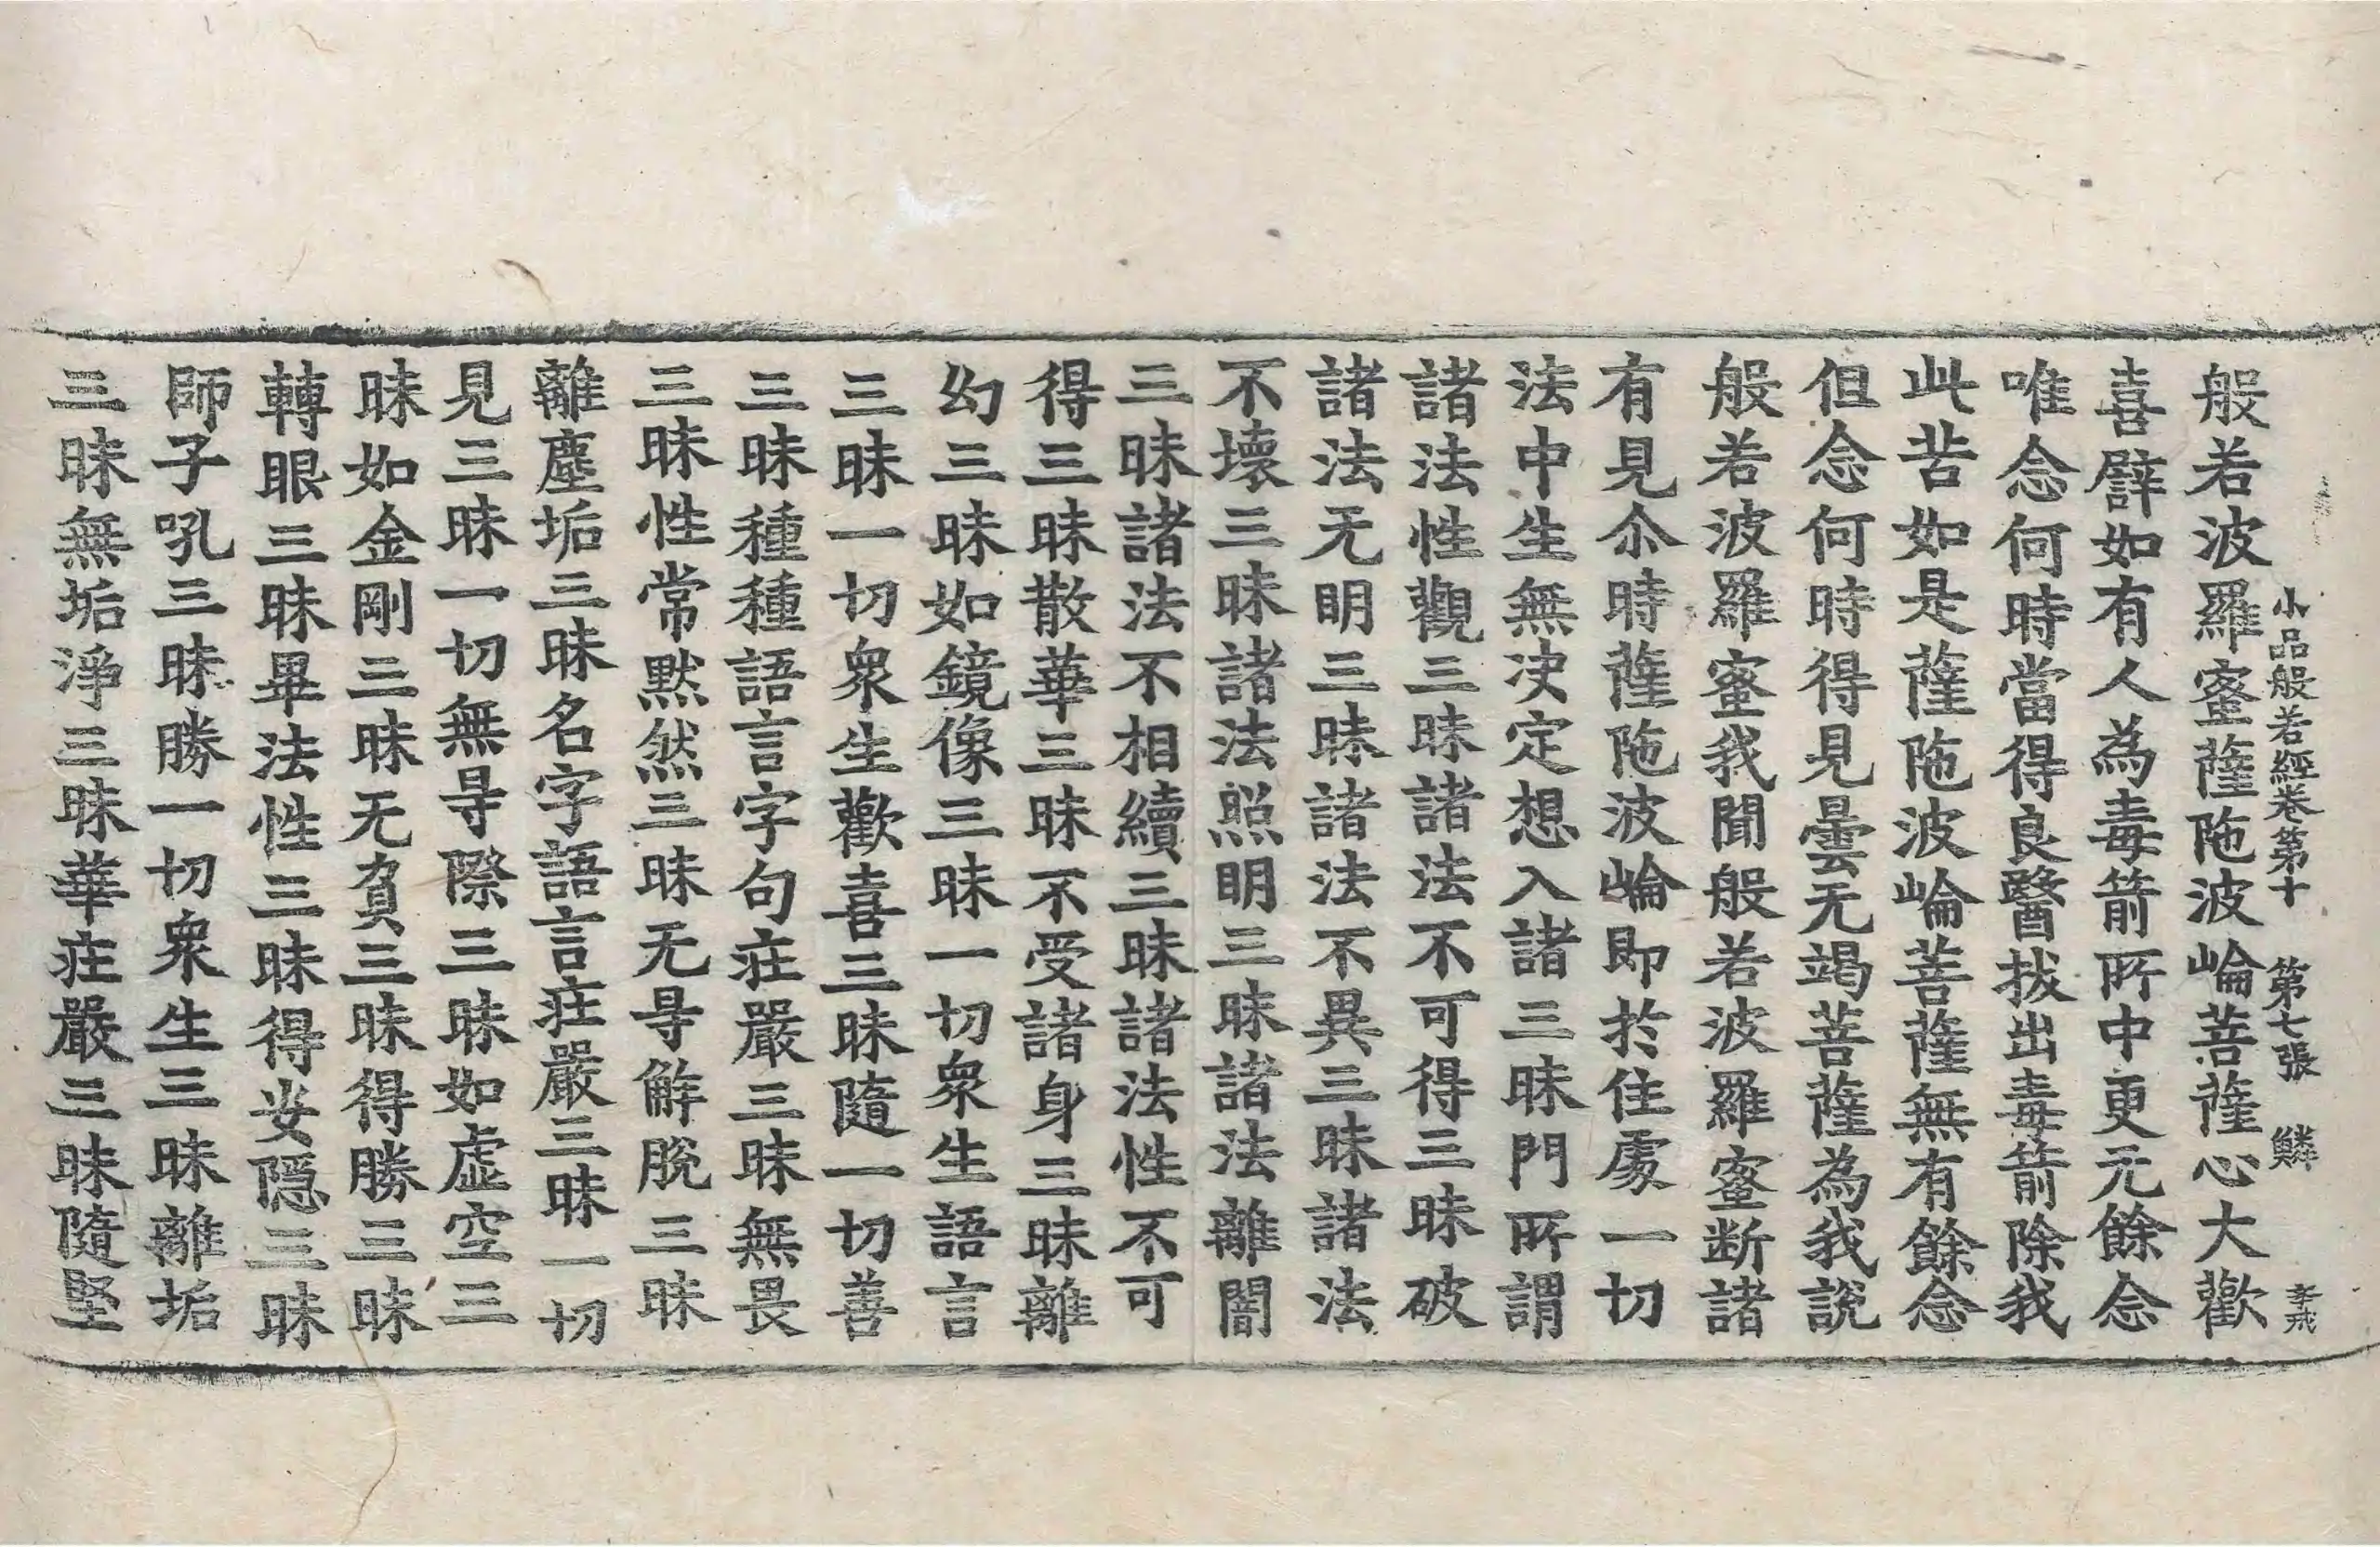 小品般若經卷第十 第七張 鱗 孝戒
般若波羅蜜薩陁波崘菩薩心大歡
喜譬如有人為毒箭所中更无餘念
唯念何時當得良醫拔出毒箭除我
此苦如是薩陁波崘菩薩無有餘念
但念何時得見曇无竭菩薩為我說
般若波羅蜜我聞般若波羅蜜断諸
有見尒時薩陁波崘即於住處一切
法中生無决定想入諸三昧門所謂
諸法性觀三昧諸法不可得三昧破
諸法无明三昧諸法不異三昧諸法
不壞三昧諸法照明三昧諸法離闇
三昧諸法不相續三昧諸法性不可
得三昧散華三昧不受諸身三昧離
幻三昧如鏡像三昧一切衆生語言
三昧一切衆生歡喜三昧隨一切善
三昧種種語言字句莊嚴三昧無畏
三昧性常默然三昧无㝵解脫三昧
離塵垢三昧名字語言莊嚴三昧一切
見三昧一切無㝵際三昧如虛空三
昧如金剛三昧无負三昧得勝三昧
轉眼三昧畢法性三昧得安隱三昧
師子吼三昧勝一切衆生三昧離垢
三昧無垢淨三昧華莊嚴三昧隨堅